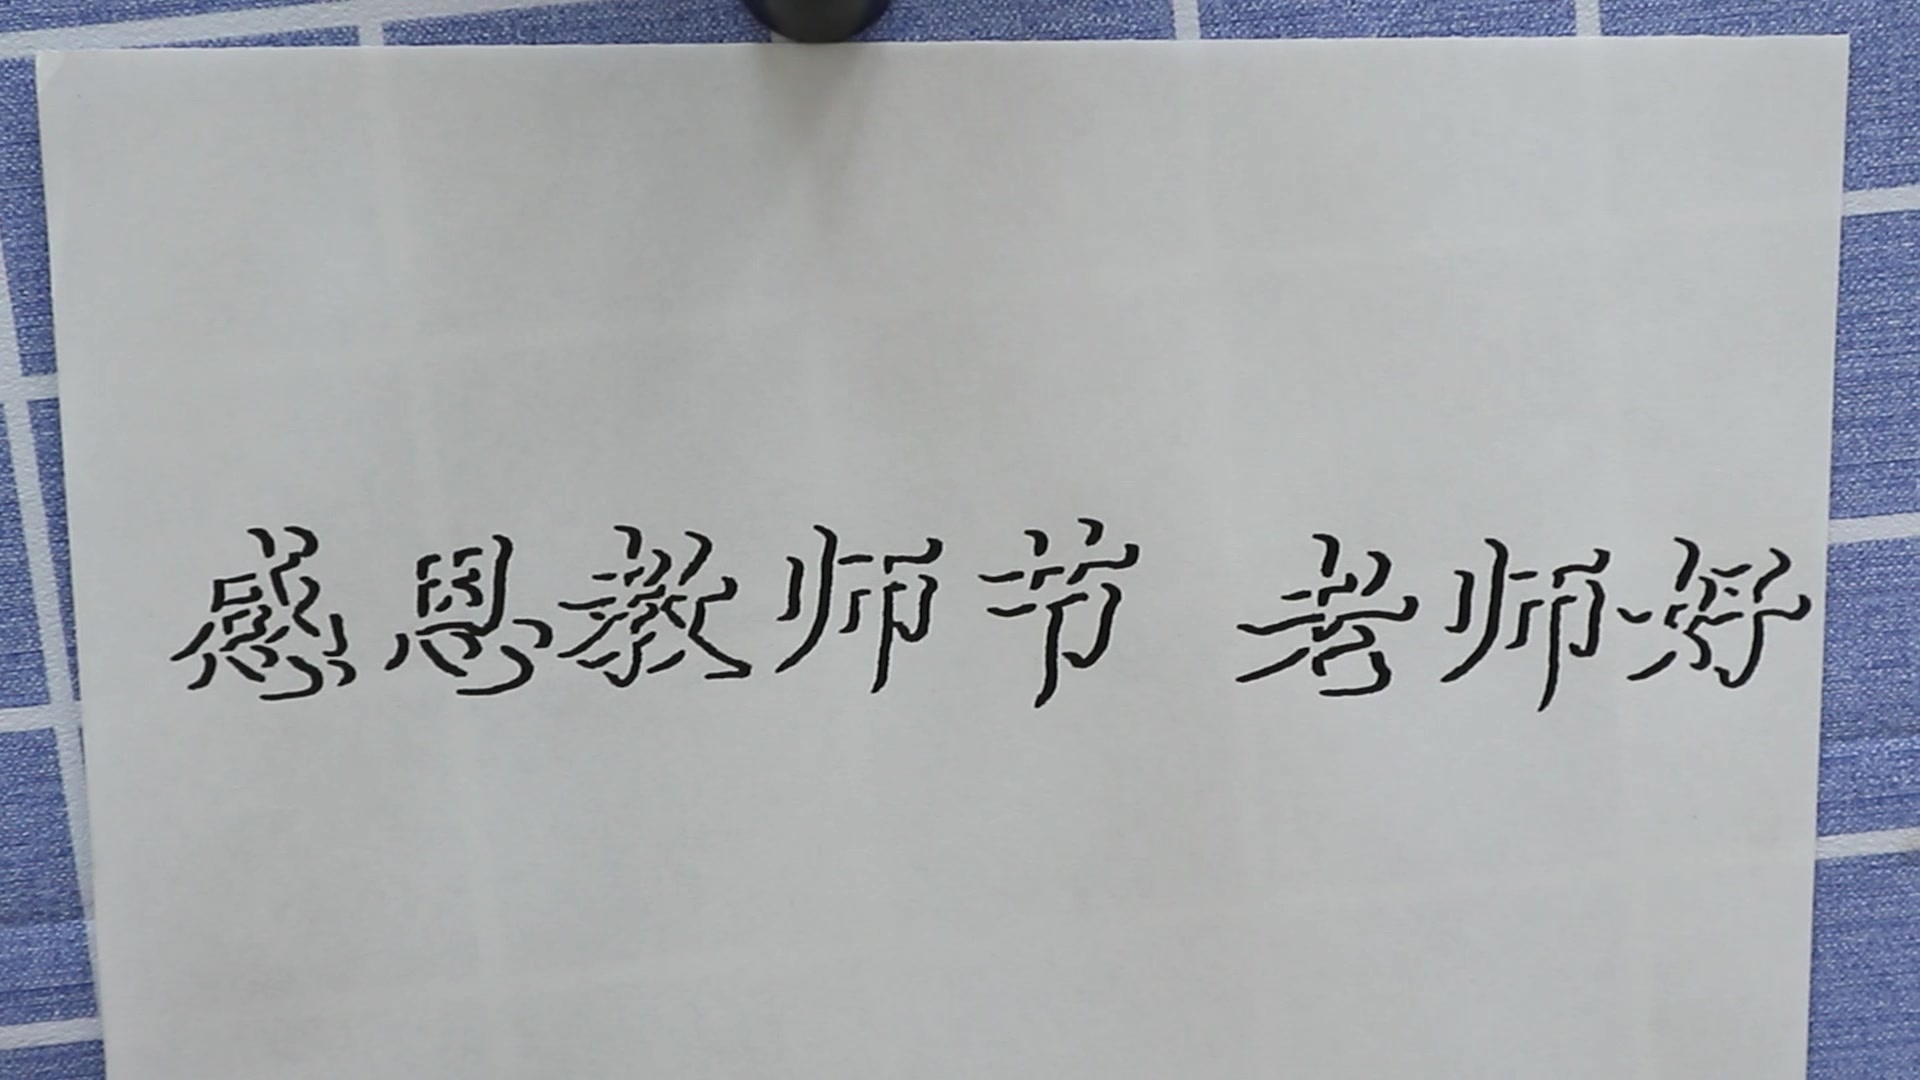 感恩教师节 老师好